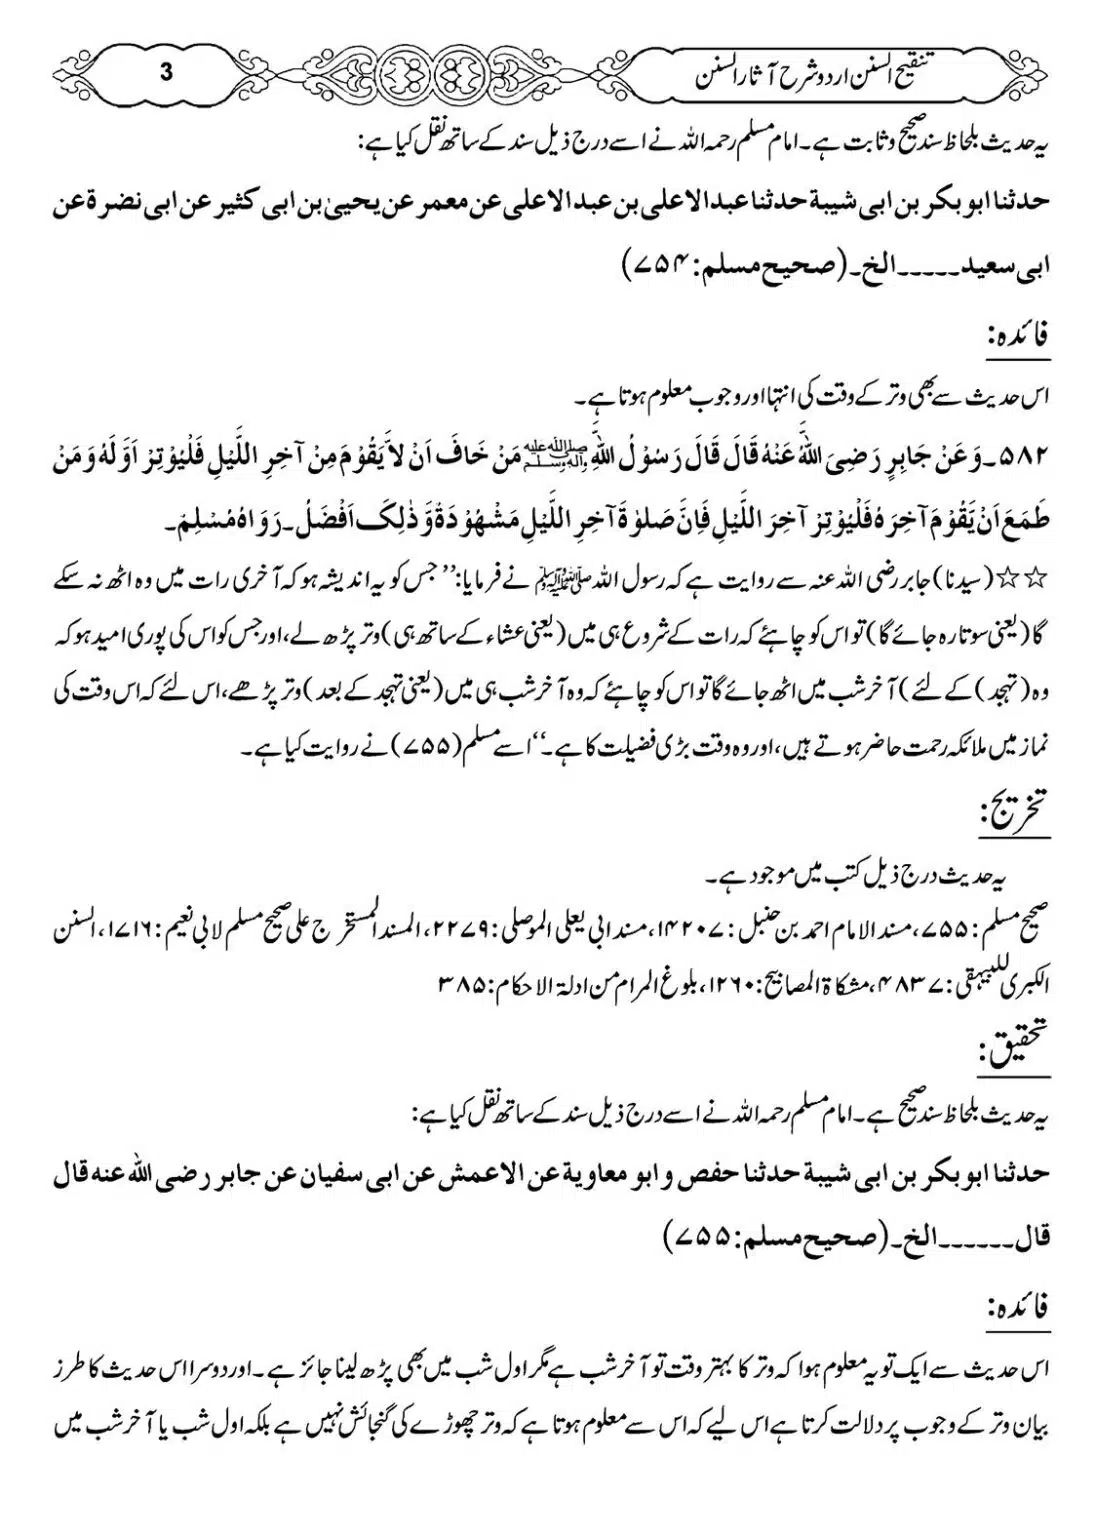 تنقیح السنن اردو شرح آثار السنن
3
یہ حدیث بلحاظ سند صحیح و ثابت ہے۔ امام مسلم رحمہ اللہ نے اسے درج ذیل سند کے ساتھ نقل کیا ہے:
حدثنا ابو بکر بن ابی شیبة حدثنا عبد الاعلی بن عبد الاعلی عن معمر عن یحییٰ بن ابی کثیر عن ابی نضرة عن
ابی سعید۔۔۔۔۔ الخ۔ (صحیح مسلم: ۷۵۴)
فائدہ:
اس حدیث سے بھی وتر کے وقت کی انتہا اور وجوب معلوم ہوتا ہے۔
۵۸۲۔ وَعَنْ جَابِرٍ رَضِیَ اللّٰہُ عَنْہُ قَالَ قَالَ رَسُوْلُ اللّٰہِ ﷺ مَنْ خَافَ اَنْ لاَّ یَقُوْمَ مِنْ آخِرِ اللَّیْلِ فَلْیُوْتِرْ اَوَّلَہُ وَمَنْ
طَمَعَ اَنْ یَّقُوْمَ آخِرَہُ فَلْیُوْتِرْ آخِرَ اللَّیْلِ فَاِنَّ صَلوٰۃَ آخِرِ اللَّیْلِ مَشْھُوْدَۃٌ وَّذٰلِکَ اَفْضَلُ۔ رَوَاہُ مُسْلِمٌ۔
☆☆ (سیدنا) جابر رضی اللہ عنہ سے روایت ہے کہ رسول اللہ ﷺ نے فرمایا: ’’جس کو یہ اندیشہ ہو کہ آخری رات میں وہ اٹھ نہ سکے
گا (یعنی سوتا رہ جائے گا) تو اس کو چاہئے کہ رات کے شروع ہی میں (یعنی عشاء کے ساتھ ہی) وتر پڑھ لے، اور جس کو اس کی پوری امید ہو کہ
وہ (تہجد) کے لئے) آخر شب میں اٹھ جائے گا تو اس کو چاہئے کہ وہ آخر شب ہی میں (یعنی تہجد کے بعد) وتر پڑھے، اس لئے کہ اس وقت کی
نماز میں ملائکہ رحمت حاضر ہوتے ہیں، اور وہ وقت بڑی فضیلت کا ہے۔‘‘ اسے مسلم (۷۵۵) نے روایت کیا ہے۔
تخریج:
یہ حدیث درج ذیل کتب میں موجود ہے۔
صحیح مسلم: ۷۵۵، مسند الامام احمد بن حنبل: ۱۴۲۰۷، مسند ابی یعلی الموصلی: ۲۲۷۹، المسند المستخرج علی صحیح مسلم لابی نعیم: ۱۷۱۶، السنن
الکبری للبیہقی: ۴۸۳۷، مشکاۃ المصابیح: ۱۲۶۰، بلوغ المرام من ادلۃ الاحکام: ۳۸۵
تحقیق:
یہ حدیث بلحاظ سند صحیح ہے۔ امام مسلم رحمہ اللہ نے اسے درج ذیل سند کے ساتھ نقل کیا ہے:
حدثنا ابو بکر بن ابی شیبة حدثنا حفص و ابو معاویة عن الاعمش عن ابی سفیان عن جابر رضی اللہ عنه قال
قال۔۔۔۔۔۔ الخ۔ (صحیح مسلم: ۷۵۵)
فائدہ:
اس حدیث سے ایک تو یہ معلوم ہوا کہ وتر کا بہتر وقت تو آخر شب ہے مگر اول شب میں بھی پڑھ لینا جائز ہے۔ اور دوسرا اس حدیث کا طرز
بیان وتر کے وجوب پر دلالت کرتا ہے اس لیے کہ اس سے معلوم ہوتا ہے کہ وتر چھوڑے کی گنجائش نہیں ہے بلکہ اول شب یا آخر شب میں